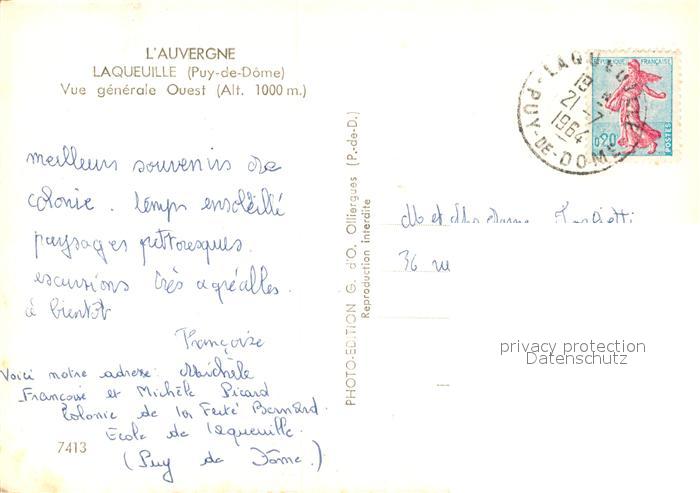 L'AUVERGNE
LAQUEUILLE (Puy-de-Dôme)
Vue générale Ouest (Alt. 1000 m.)
meilleurs souvenirs de
colonie. temps ensoleillé
paysages pittoresques.
excursions très agréables.
à bientôt
Françoise
Voici notre adresse: Michèle
Françoise et Michèle Picard
Colonie de la Ferté Bernard.
Ecole de laqueuille.
(Puy de Dôme.)
7413
PHOTO-EDITION G. d'O. Olliergues (P.-de-D.)
Reproduction interdite
LAQUEUILLE
18
21-7
1964
PUY-DE-DOME
REPUBLIQUE FRANÇAISE
0,20
POSTES
M et Madame
36 ru
privacy protection
Datenschutz